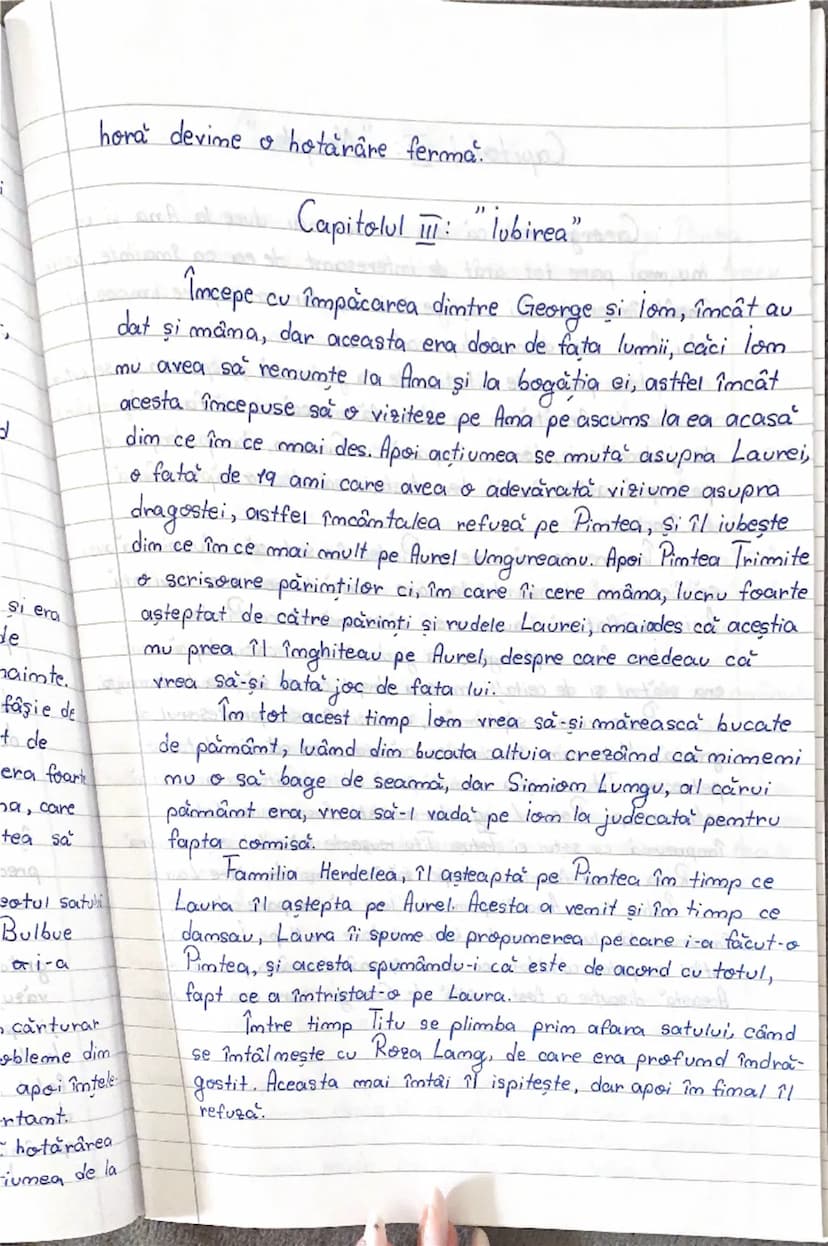 horă devine o hotărâre fermă.
Capitolul III: "Iubirea"
Începe cu împăcarea dintre George și Ion, încât au
dat și mâna, dar aceasta era doar de fața lumii, căci Ion
nu avea să renunțe la Ana și la bogăția ei, astfel încât
acesta începuse să o viziteze pe Ana pe ascuns la ea acasă
din ce în ce mai des. Apoi acțiunea se mută asupra Laurei,
o fată de 19 ani care avea o adevărată viziune asupra
dragostei, astfel încântalea refuză pe Pintea, și îl iubește
din ce în ce mai mult pe Aurel Ungureanu. Apoi Pintea Trimite
o scrisoare părinților ei, în care îi cere mâna, lucru foarte
așteptat de către părinți și rudele Laurei, maiades că aceștia
nu prea îl înghiteau pe Aurel, despre care credeau că
vrea să-și bată joc de fata lui.
În tot acest timp, Ion vrea să-și mărească bucate
de pământ, luând din bucata altuia crezând că nimeni
nu o să bage de seamă, dar Simion Lungu, al cărui
pământ era, vrea să-l vadă pe ion la judecată pentru
fapta comisă.
Familia Herdelea, îl așteaptă pe Pintea în timp ce
Laura îl aștepta pe Aurel. Acesta a venit și în timp ce
dansau, Laura îi spune de propunerea pe care i-a făcut-o
Pintea, și acesta spunându-i că este de acord cu totul,
fapt ce a întristat-o pe Laura.
Între timp Titu se plimba prin afara satului, când
se întâlnește cu Roza Lang, de care era profund îndră-
gostit. Aceasta mai întâi îl ispitește, dar apoi în final îl
refuză.
și era
de
nainte.
fâșie de
t de
era foarte
na, care
tea să
satul satului
Bulbuc
or i-a
cărturar
obleme din
apoi înțele-
rtant.
hotărârea
iunea de la